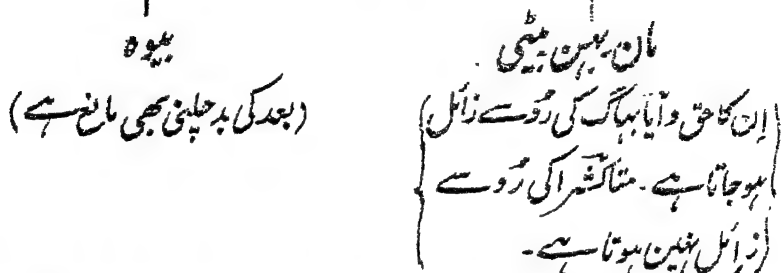 مان بہن بیٹی
(اِن کا حق دایا بہاگ کی رُو سے زائل
ہو جاتا ہے۔ متاکشرا کی رُو سے
زائل نہین ہوتا ہے۔
بیوہ
(بعد کی بدچلنی بھی مانع ہے)